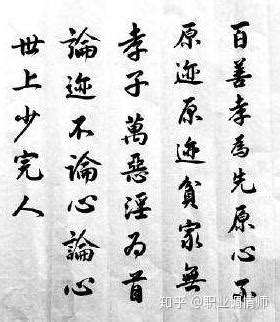 百善孝為先原心不
原迹原迹貧家無
孝子萬惡淫為首
論迹不論心論心
世上少完人
知乎 @职业调情师